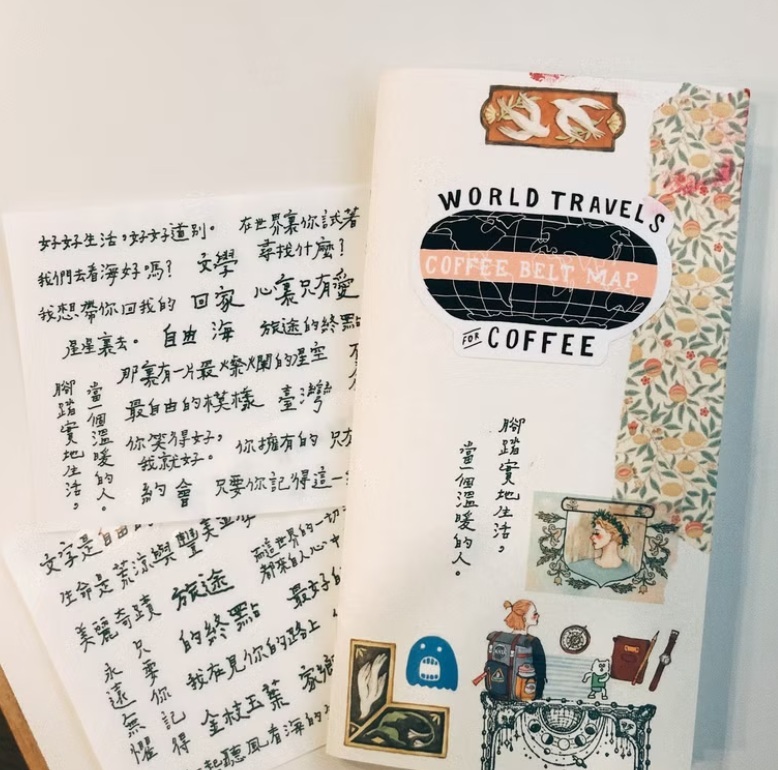 好好生活,好好道別。
在世界裏你試著
尋找什麼?
我們去看海好嗎?
文學
我想帶你回我的
回家
心裏只有愛
星星裏去。
自由
海
旅途的終點
那裏有一片最燦爛的星空
最自由的模樣
臺灣
當一個溫暖的人。
腳踏實地生活。
你笑得好,
我就好。
你擁有的
只有
約會
只要你記得這一
文字是自由的
生命是荒涼與豐美並
而這世界的一切
都來自人心中
美麗奇蹟
旅途
的終點
最好的
只要你記得
永遠無懼
我在見你的路上
金枝玉葉
家鄉
起聽風看海的
WORLD TRAVELS
COFFEE BELT MAP
FOR COFFEE
腳踏實地生活。
當一個溫暖的人。